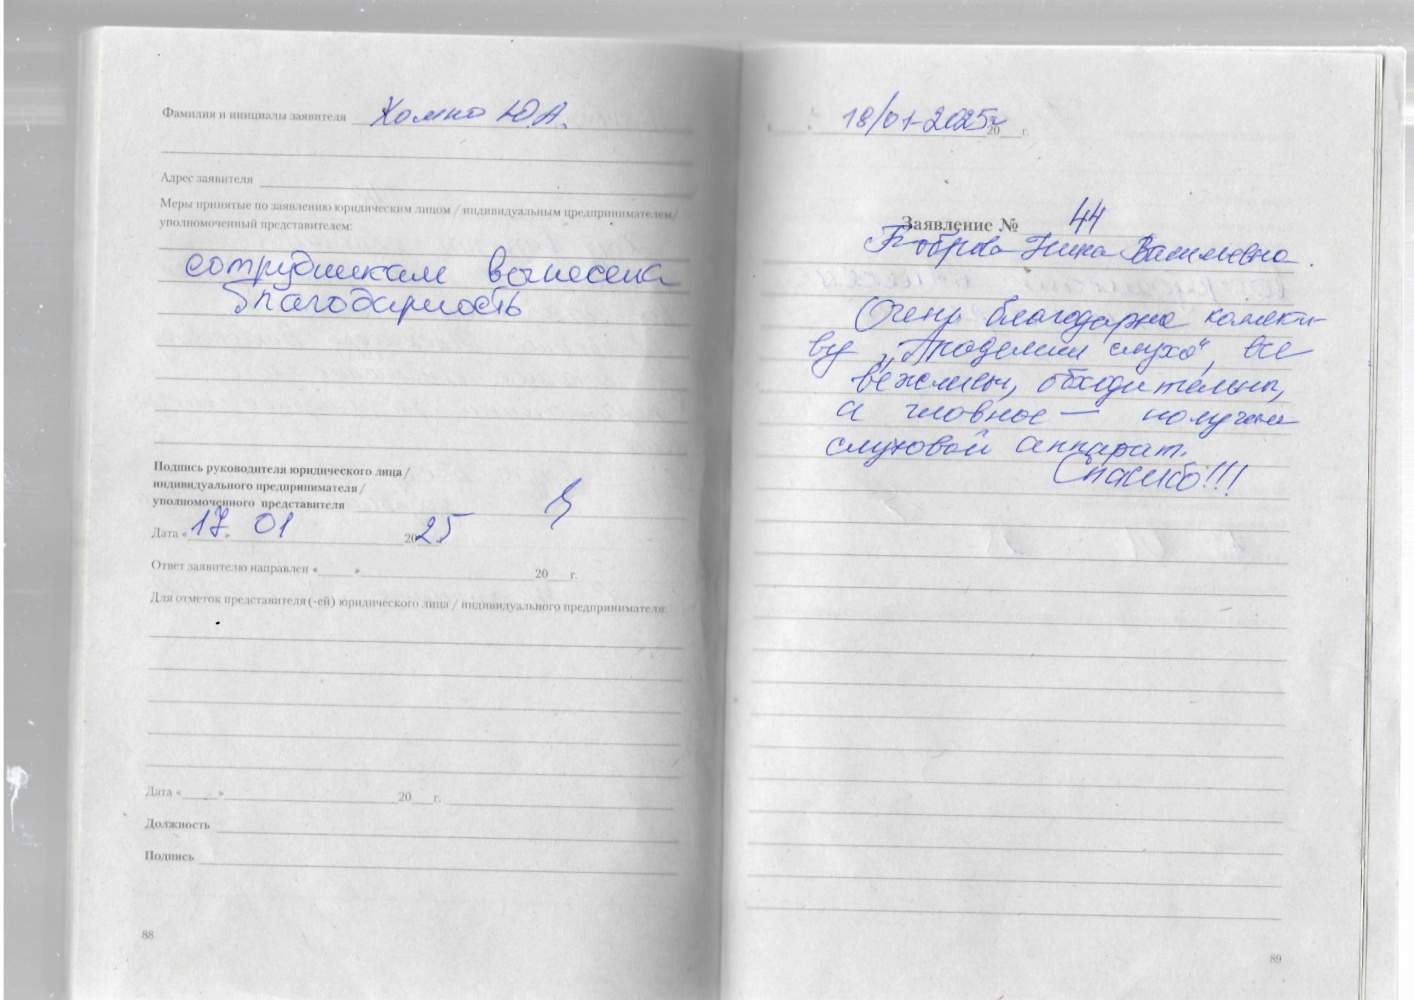 Фамилия и инициалы заявителя Хомко Ю.А.
Адрес заявителя
Меры принятые по заявлению юридическим лицом / индивидуальным предпринимателем/
уполномоченный представителем:
сотрудникам вынесена
благодарность
Подпись руководителя юридического лица /
индивидуального предпринимателя /
уполномоченного представителя
Дата « 17 » 01 2025
Ответ заявителю направлен « » 20 г.
Для отметок представителя (-ей) юридического лица / индивидуального предпринимателя:
Дата « » 20 г.
Должность
Подпись
88
18/01-2025г 20 г.
Заявление № 44
Боброва Нина Васильевна.
Очень благодарна коллекти-
ву „Академии слуха", все
вежливы, обходительны,
а главное — получен
слуховой аппарат.
Спасибо!!!
89